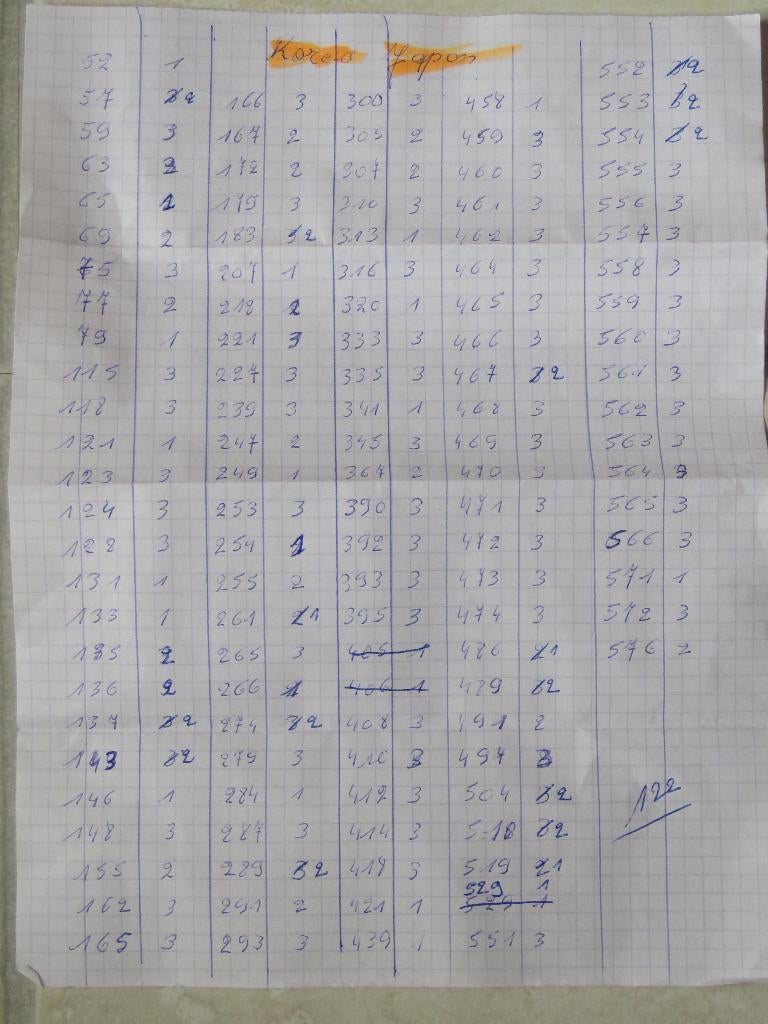 Korea Japon
52 1 552 2
57 2 166 3 300 3 458 1 553 2
59 3 167 2 305 2 459 3 554 2
63 2 172 2 307 2 460 3 555 3
65 1 179 3 310 3 461 3 556 3
69 2 183 2 313 1 462 3 557 3
75 3 207 1 316 3 464 3 558 3
77 2 212 2 320 1 465 3 559 3
79 1 221 3 333 3 466 3 560 3
115 3 227 3 335 3 467 2 561 3
118 3 239 3 341 1 468 3 562 3
121 1 247 2 345 3 469 3 563 3
123 3 249 1 367 2 470 3 564 3
124 3 253 3 390 3 471 3 565 3
128 3 254 1 392 3 472 3 566 3
131 1 255 2 393 3 473 3 571 1
133 1 261 1 395 3 474 3 572 3
135 2 265 3 405 1 486 1 576 2
136 2 266 1 406 1 489 2
137 2 274 2 408 3 491 2
143 2 279 3 410 3 497 3
146 1 284 1 412 3 504 2 122
148 3 287 3 414 3 518 2
155 2 289 2 418 3 519 1
529 1
162 3 291 2 421 1 529 1
165 3 293 3 439 1 551 3